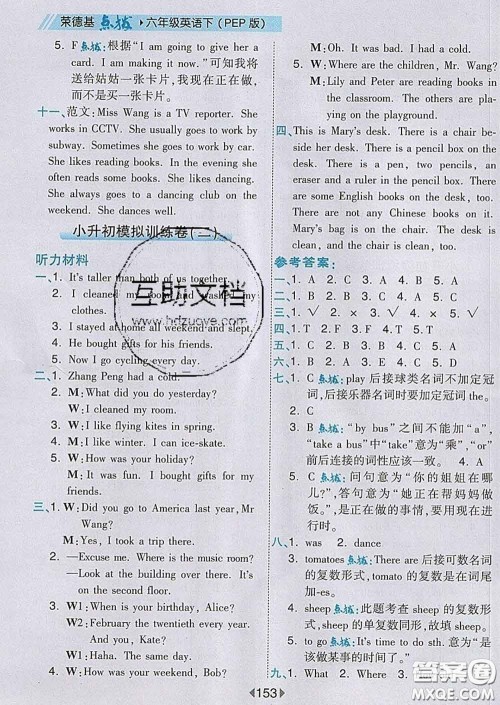 荣德基 点拨 ▸六年级英语下(PEP 版)
5. F 点拨:根据“I am going to give her a
card. I am making it now.”可知我将
送给姑姑一张卡片,我现在正在做,
而不是买一张卡片。
十一、范文:Miss Wang is a TV reporter. She
works in CCTV. She usually goes to work by
subway. Sometimes she goes to work by car.
She likes reading books. In the evening she
often reads books. She also likes dancing.
She always goes to a dancing club on the
weekend. She dances well.
小升初模拟训练卷(二)
听力材料
一、1. It's taller than both of us together.
2. I cleaned my room and washed my
clothes.
3. I stayed at home all weekend and slept.
4. He bought gifts for his friends.
5. Now I go cycling every day.
二、1. Zhang Peng had a cold.
2. W: What did you do yesterday?
M: I cleaned my room.
3. W: I like flying kites in spring.
M: I like winter. I can ice-skate.
4. W: How was your holiday?
M: It was fun. I bought gifts for my
friends.
三、1. W: Did you go to America last year, Mr
Wang?
M: Yes, I took a trip there.
2. —Excuse me. Where is the music room?
—Look at the building over there. It's
on the second floor.
3. W1: When is your birthday, Alice?
W2: February the twentieth every year.
And you, Pet?
W1: Haha. The same day.
4. W: How was your weekend, Bob?
M: It was OK.
5. W: Where are the children, Mr. Wang?
M: Lily and Peter are reading books in
the classroom. The others are playing
on the playground.
四、This is Mary's desk. There is a chair be-
side her desk. There is a computer on the
desk. There is a pen, two pencils, an
eraser and a ruler on the desk. There are
some English books on the desk, too.
There are not any Chinese books on it.
Mary's bag is on the chair. The desk and
the chair are clean.
参考答案:
一、1. A 2. C 3. A 4. A 5. B
二、1. B 2. C 3. A 4. B 5. C
三、1. √ 2. × 3. √ 4. √ 5. ×
四、1. T 2. F 3. T 4. F 5. F
七、1. C 点拨:play 后接球类名词不加定冠
词,后接乐器名词时要加定冠词 the。
2. C
3. B 点拨:“by bus”之间不能加“a”,
“take a bus”中“take”意为“乘”,“or”
前后连接的词性应该一致。 4. A
5. C 点拨:问句意为“你的姐姐在哪
儿?”,答句意为“她正在帮妈妈做
饭”,C 选项符合。
八、1. was 2. dance
3. tomatoes 点拨:There are 后接可数名词
的复数形式,tomato 的复数是在词尾
加-es。
4. sheep 点拨:此题考查 sheep 的复数形
式,sheep 的单复数同形。
5. to go 点拨:It's time to do sth. 意为“是
该做某事的时间了”。
九、1. What 2. Where 3. When
153
互助文档
www.hdzuoye.com
答案圈
MXQE.COM